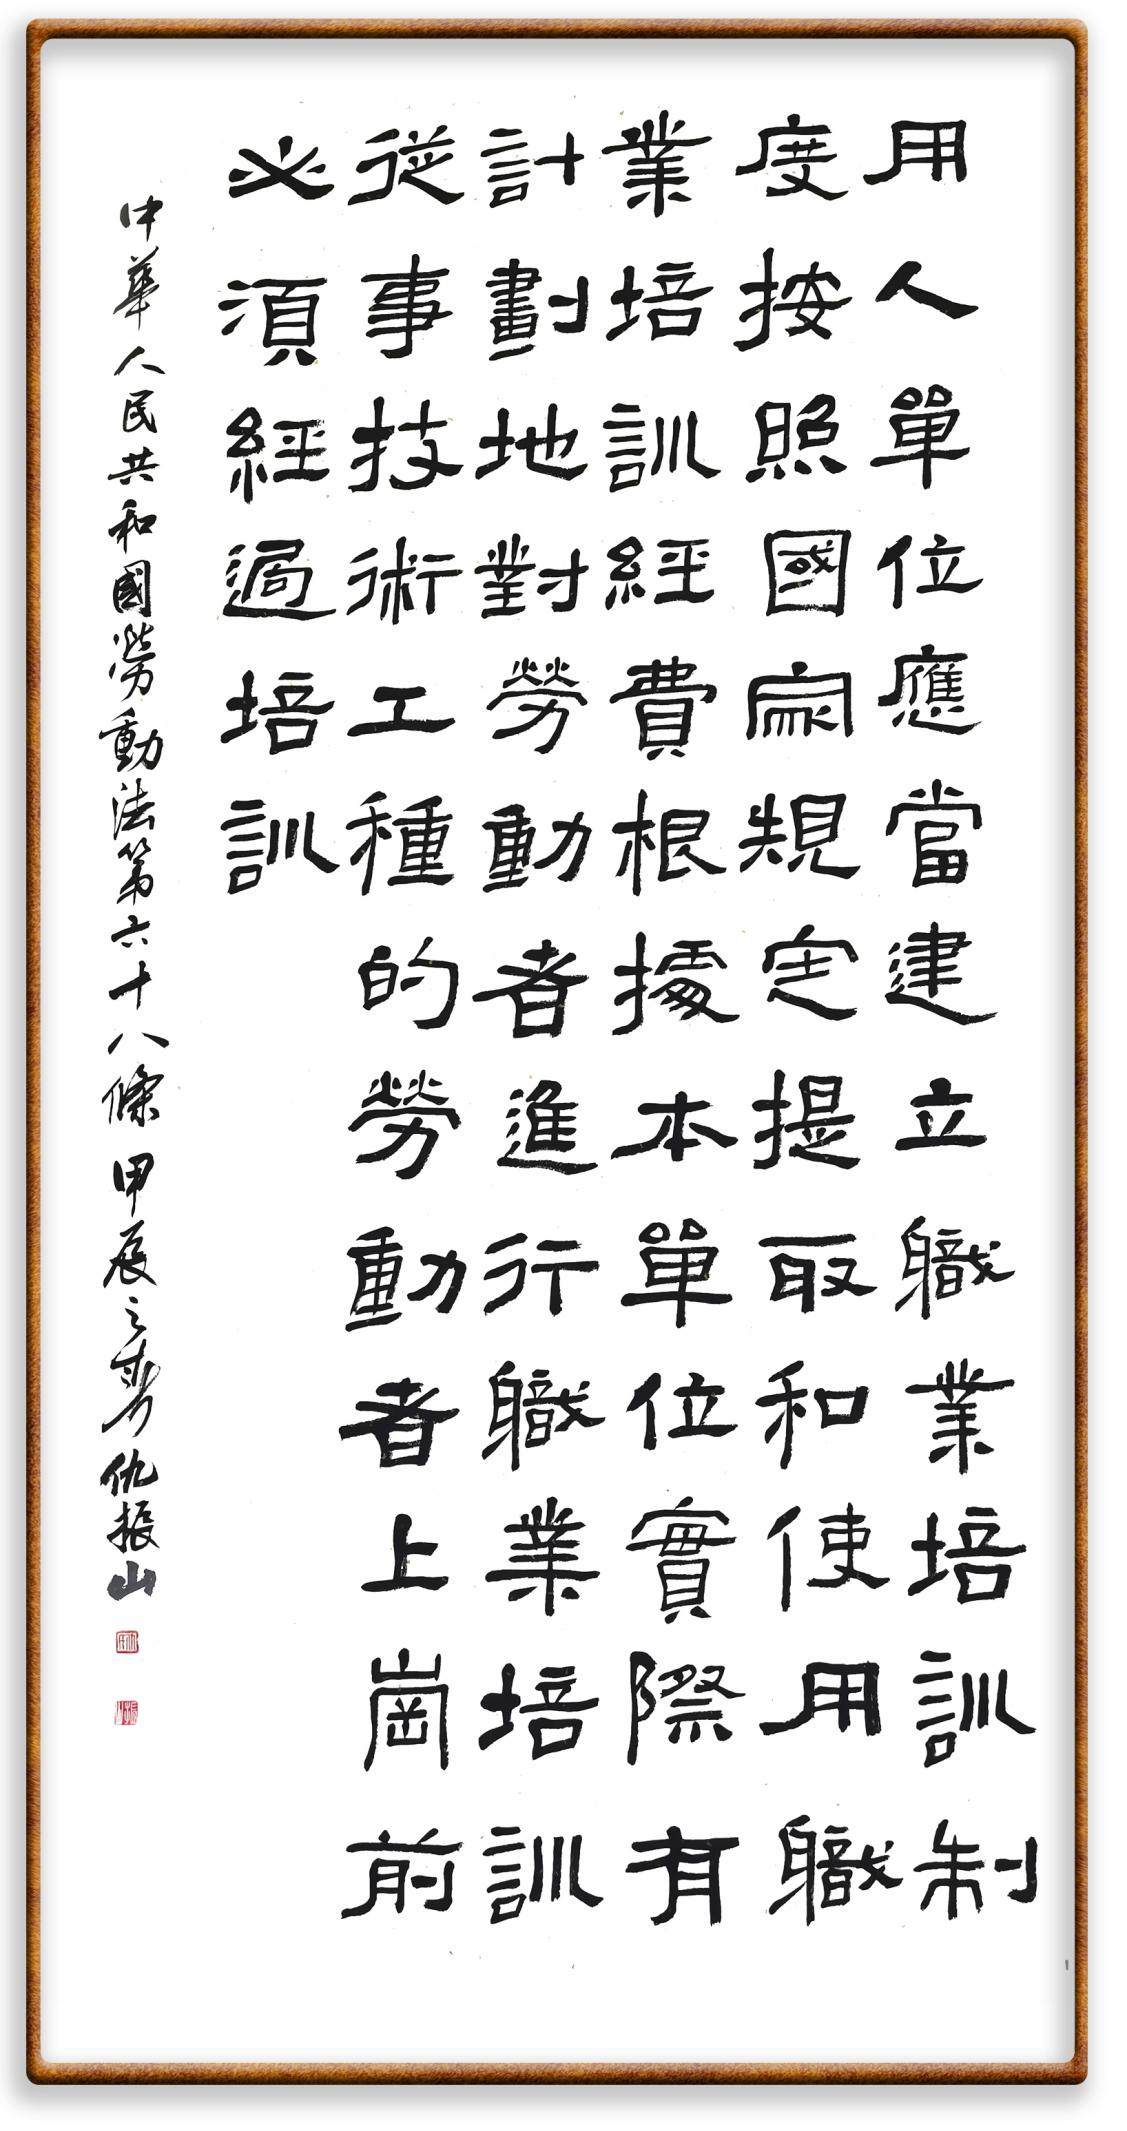 用人單位應當建立職業培訓制
度按照國家規定提取和使用職
業培訓經費根據本單位實際有
計劃地對勞動者進行職業培訓
從事技術工種的勞動者上崗前
必須經過培訓
中華人民共和國勞動法第六十八條 甲辰之春 仇振山